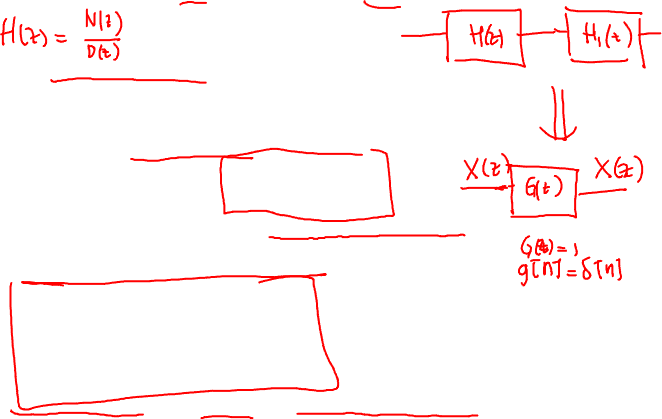 H(z) = N(z)/D(z)
H(z) H₁(z)
X(z) G(z) X(z)
G(z) = 1
g[n] = δ[n]